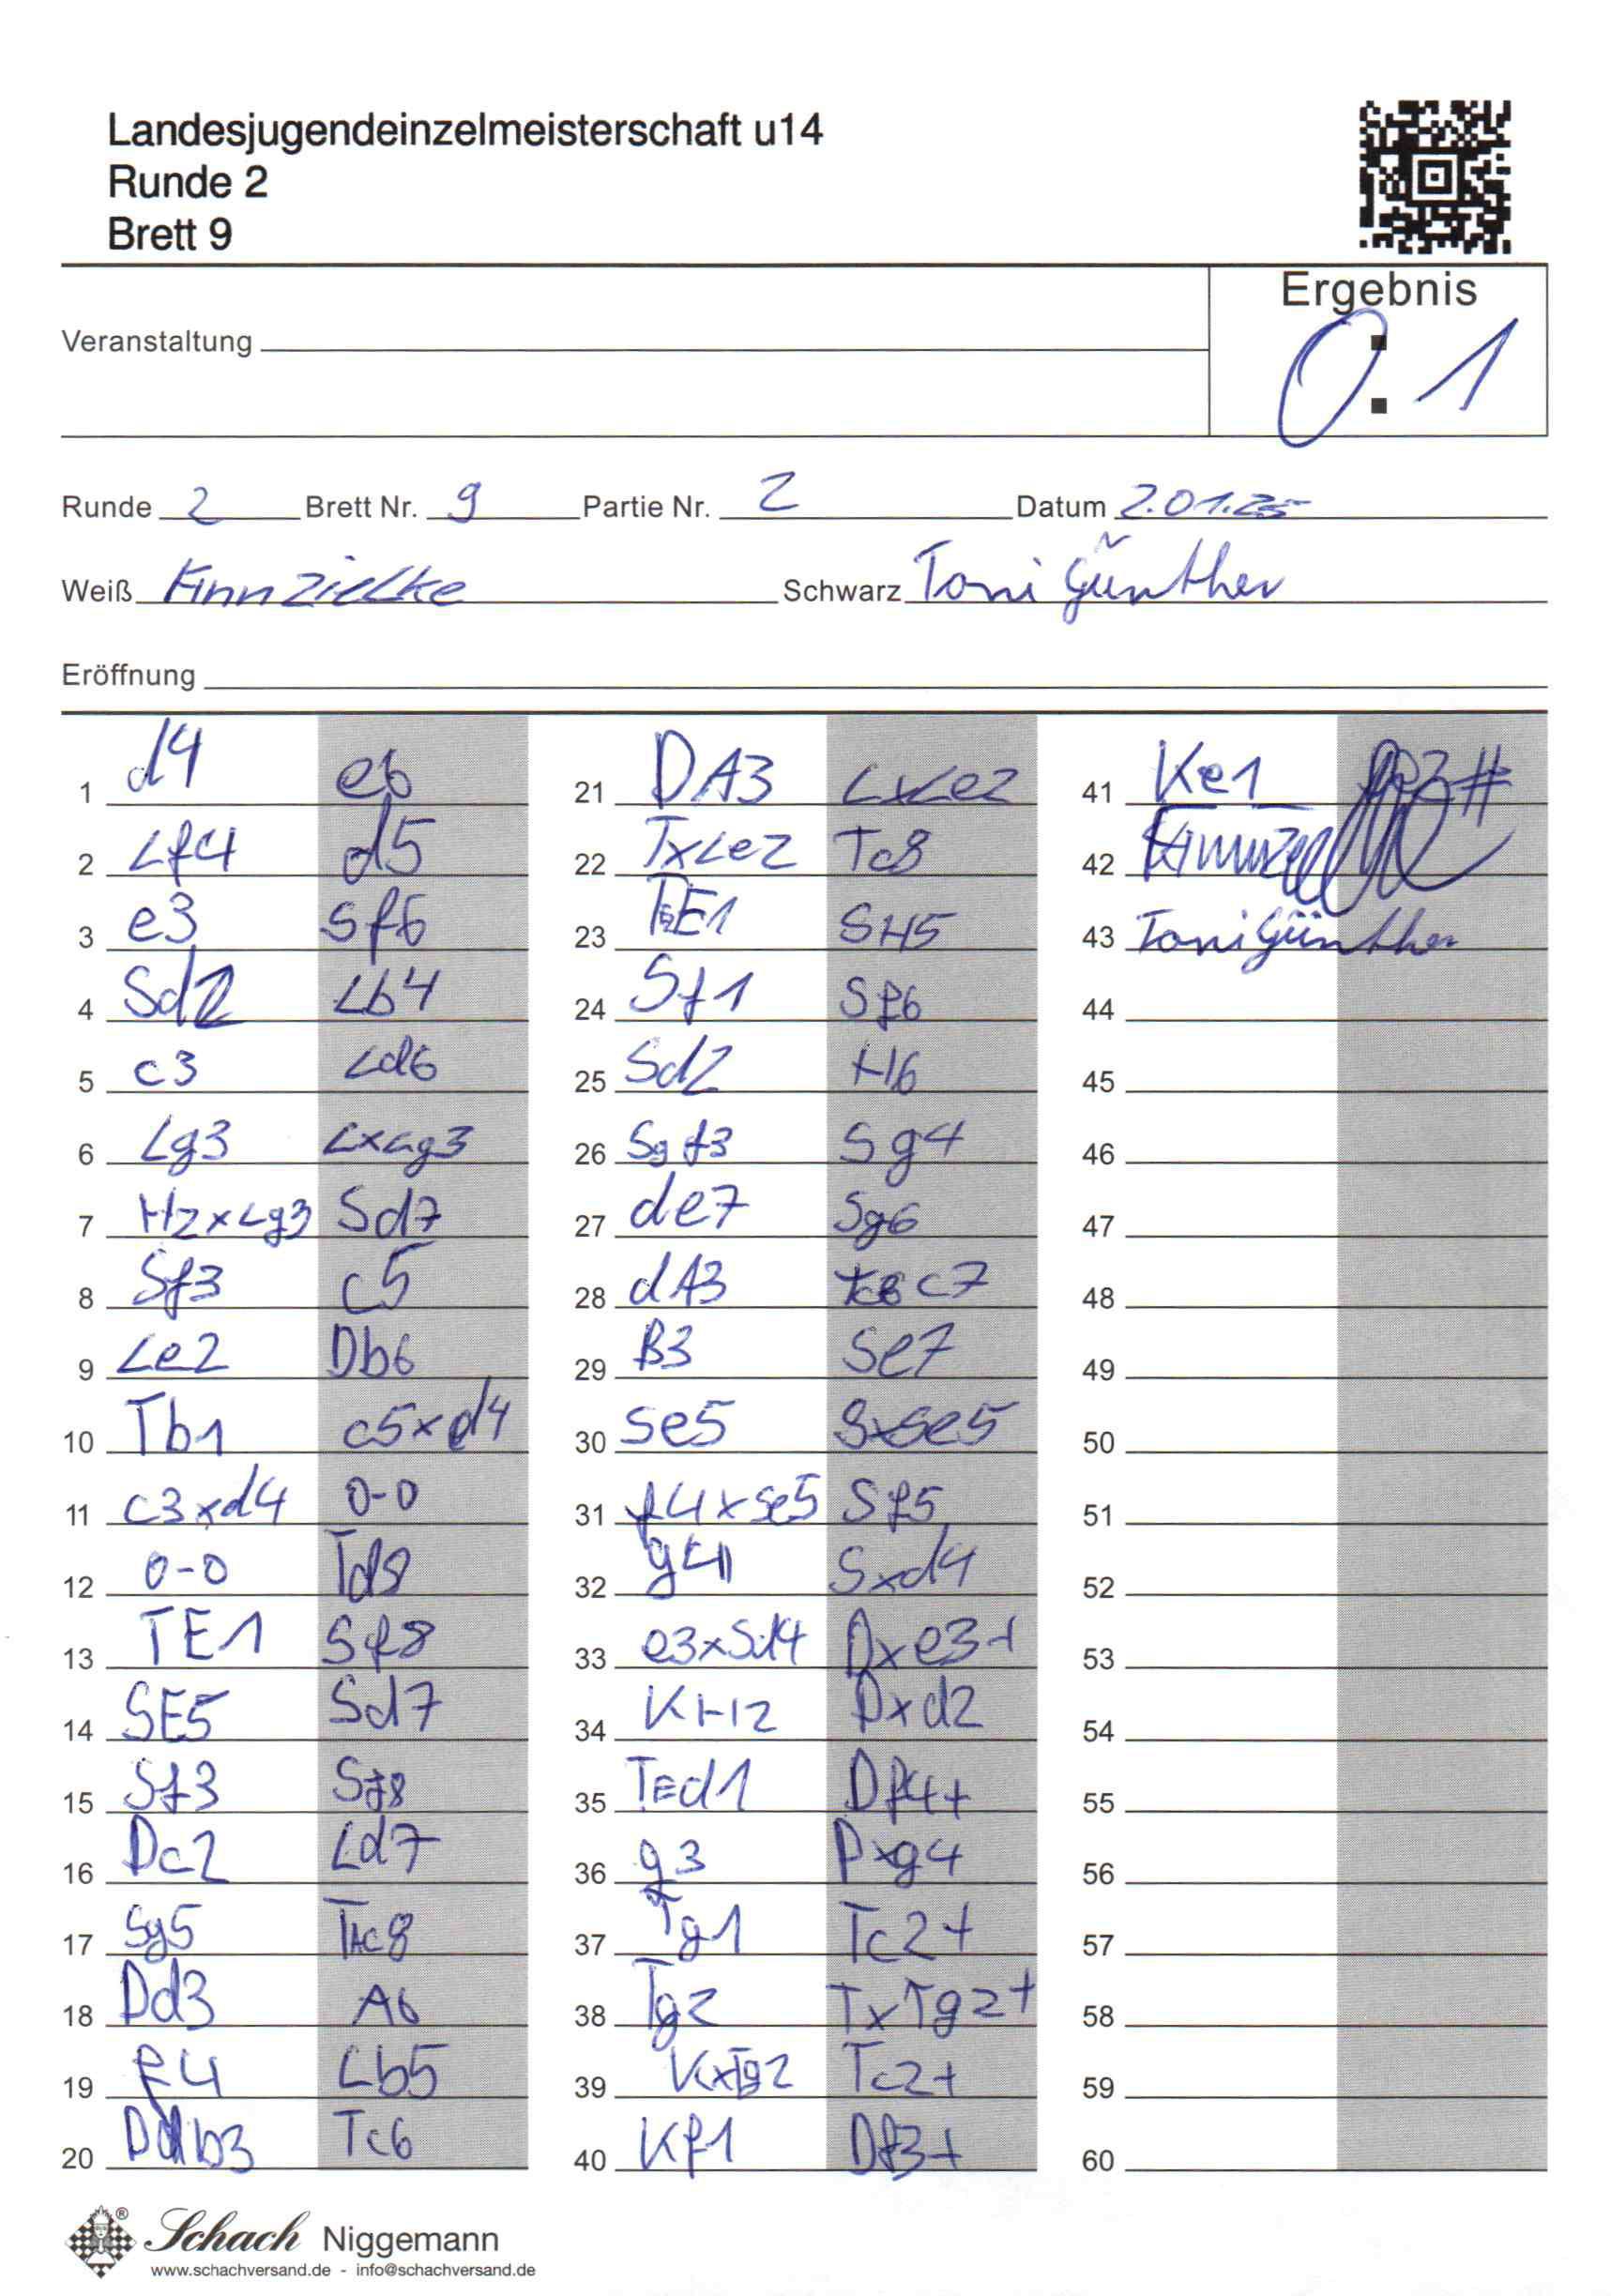 Landesjugendeinzelmeisterschaft u14
Runde 2
Brett 9
Ergebnis
0:1
Veranstaltung
Runde 2 Brett Nr. 9 Partie Nr. 2 Datum 2.01.25
Weiß Finn Zielke Schwarz Toni Günther
Eröffnung
1 d4 e6
2 Lf4 d5
3 e3 Sf6
4 Sd2 Lb4
5 c3 Ld6
6 Lg3 LxLg3
7 H2xLg3 Sd7
8 Sf3 c5
9 Le2 Db6
10 Tb1 c5xd4
11 c3xd4 0-0
12 0-0 Td8
13 TE1 Sf8
14 SE5 Sd7
15 Sf3 Sf8
16 Dc2 Ld7
17 Sg5 TAc8
18 Dd3 A6
19 f4 Lb5
20 Db3 Tc6
21 DA3 LxLe2
22 TxLe2 Tc8
23 TE1 SH5
24 Sf1 Sf6
25 Sd2 H6
26 Sgf3 Sg4
27 de7 Sg6
28 dA3 c7
29 B3 Se7
30 Se5 SxSe5
31 f4xSe5 Sf5
32 g4 Sxd4
33 e3xSd4 Dxe3+
34 KH2 Dxd2
35 TEd1 Df4+
36 g3 Dxg4
37 Tg1 Tc2+
38 Tg2 TxTg2+
39 KxTg2 Tc2+
40 Kf1 Df3+
41 Ke1
42
43 Toni Günther
44
45
46
47
48
49
50
51
52
53
54
55
56
57
58
59
60
Schach Niggemann
www.schachversand.de - info@schachversand.de